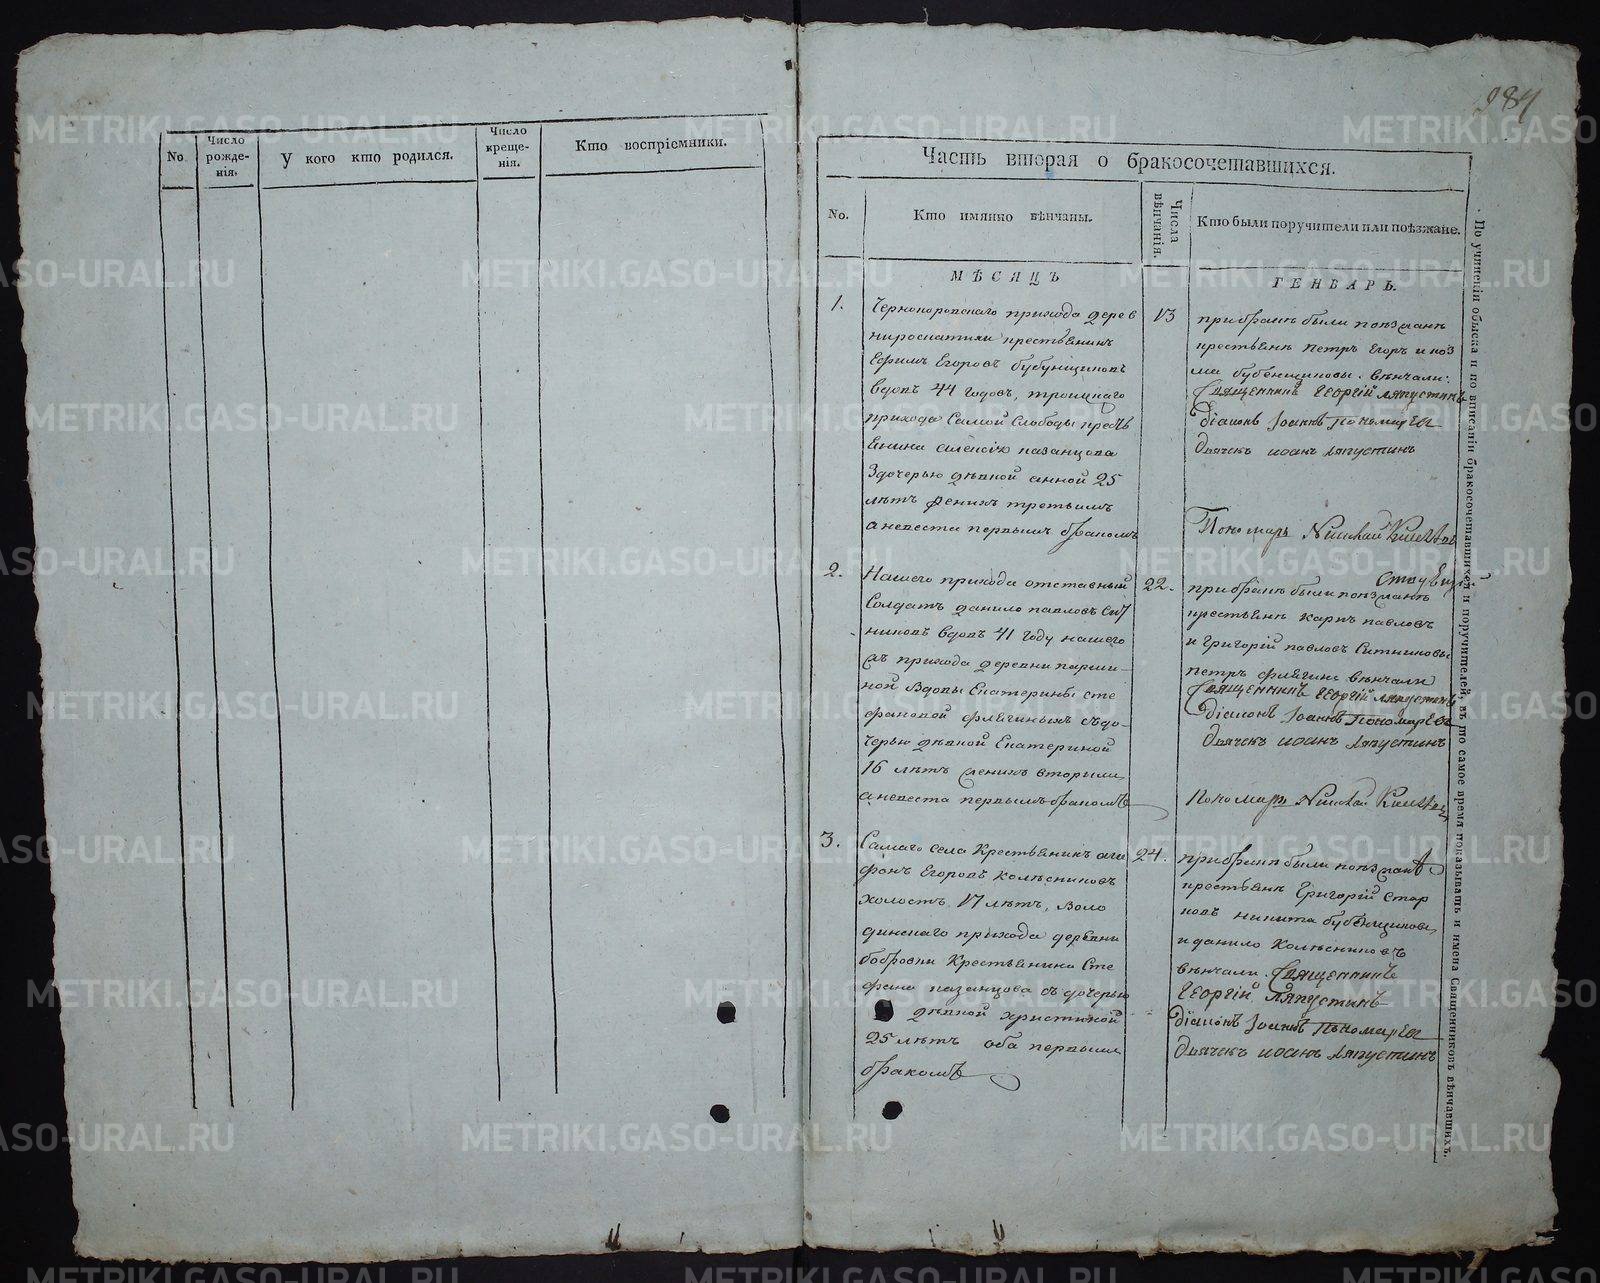 284
No.
Число рожде-нія.
У кого кто родился.
Число креще-нія.
Кто воспріемники.
Часть вторая о бракосочетавшихся.
No.
Кто имянно вѣнчаны.
Числа вѣнчанія.
Кто были поручители или поѣзжане.
МѢСЯЦЪ
ГЕНВАРЬ.
1.
прихода дерев
крестьянинъ
Ефимъ Егоровъ бубунщиковъ
вдовъ 44 годовъ, троицкаго
прихода Самой Слободы крестъ
янина алексѣю казанцова
Здочерью дѣвкой анной 25
лѣтъ женихъ третьимъ
а невеста первымъ бракомъ
13
при бракѣ были поѣзжанѣ
крестьянѣ Петръ Егоръ и коз
ма бубенщиковы. вѣнчали:
Священникъ Георгій ляпустинъ
Діаконъ Іоаннъ Пономаревъ
Дьячекъ иоанъ ляпустинъ
Пономарь Николай
2.
Нашего прихода отставный
Солдатъ данило павловъ Сит
никовъ вдовъ 41 году нашего
жъ прихода деревни парши-
ной вдовы Екатерины сте
фановой флягиныхъ съ до-
черью дѣвкой Екатериной
16 лѣтъ женихъ вторымъ
а невеста первымъ бракомъ
22.
при бракѣ были поѣзжанѣ
крестьянѣ карпъ павловъ
и Григорій павловъ Ситниковы
петръ флягинъ вѣнчали
Священникъ Георгій ляпустинъ
Діаконъ Іоаннъ Пономаревъ
Дьячекъ иоанъ ляпустинъ
Пономарь Николай
3.
Самаго села Крестьянинъ ага
фонъ Егоровъ колѣсниковъ
холостъ 17 лѣтъ, Воло
динскаго прихода деревни
бобровки Крестьянина Сте
фана казанцова съ дочерью
дѣвкой христиной
25 лѣтъ оба первымъ
бракомъ
24.
при бракѣ были поѣзжанѣ
крестьянѣ Григорій Стар
ковъ никита бубенщиковъ
и данило колѣсниковъ
вѣнчали. Священникъ
Георгій ляпустинъ
Діаконъ Іоаннъ Пономаревъ
Дьячекъ иоанъ ляпустинъ
По учиненіи обыска и по вписаніи бракосочетавшихся и поручителей, въ то самое время показывать и имена Священниковъ вѣнчавшихъ.
METRIKI.GASO-URAL.RU